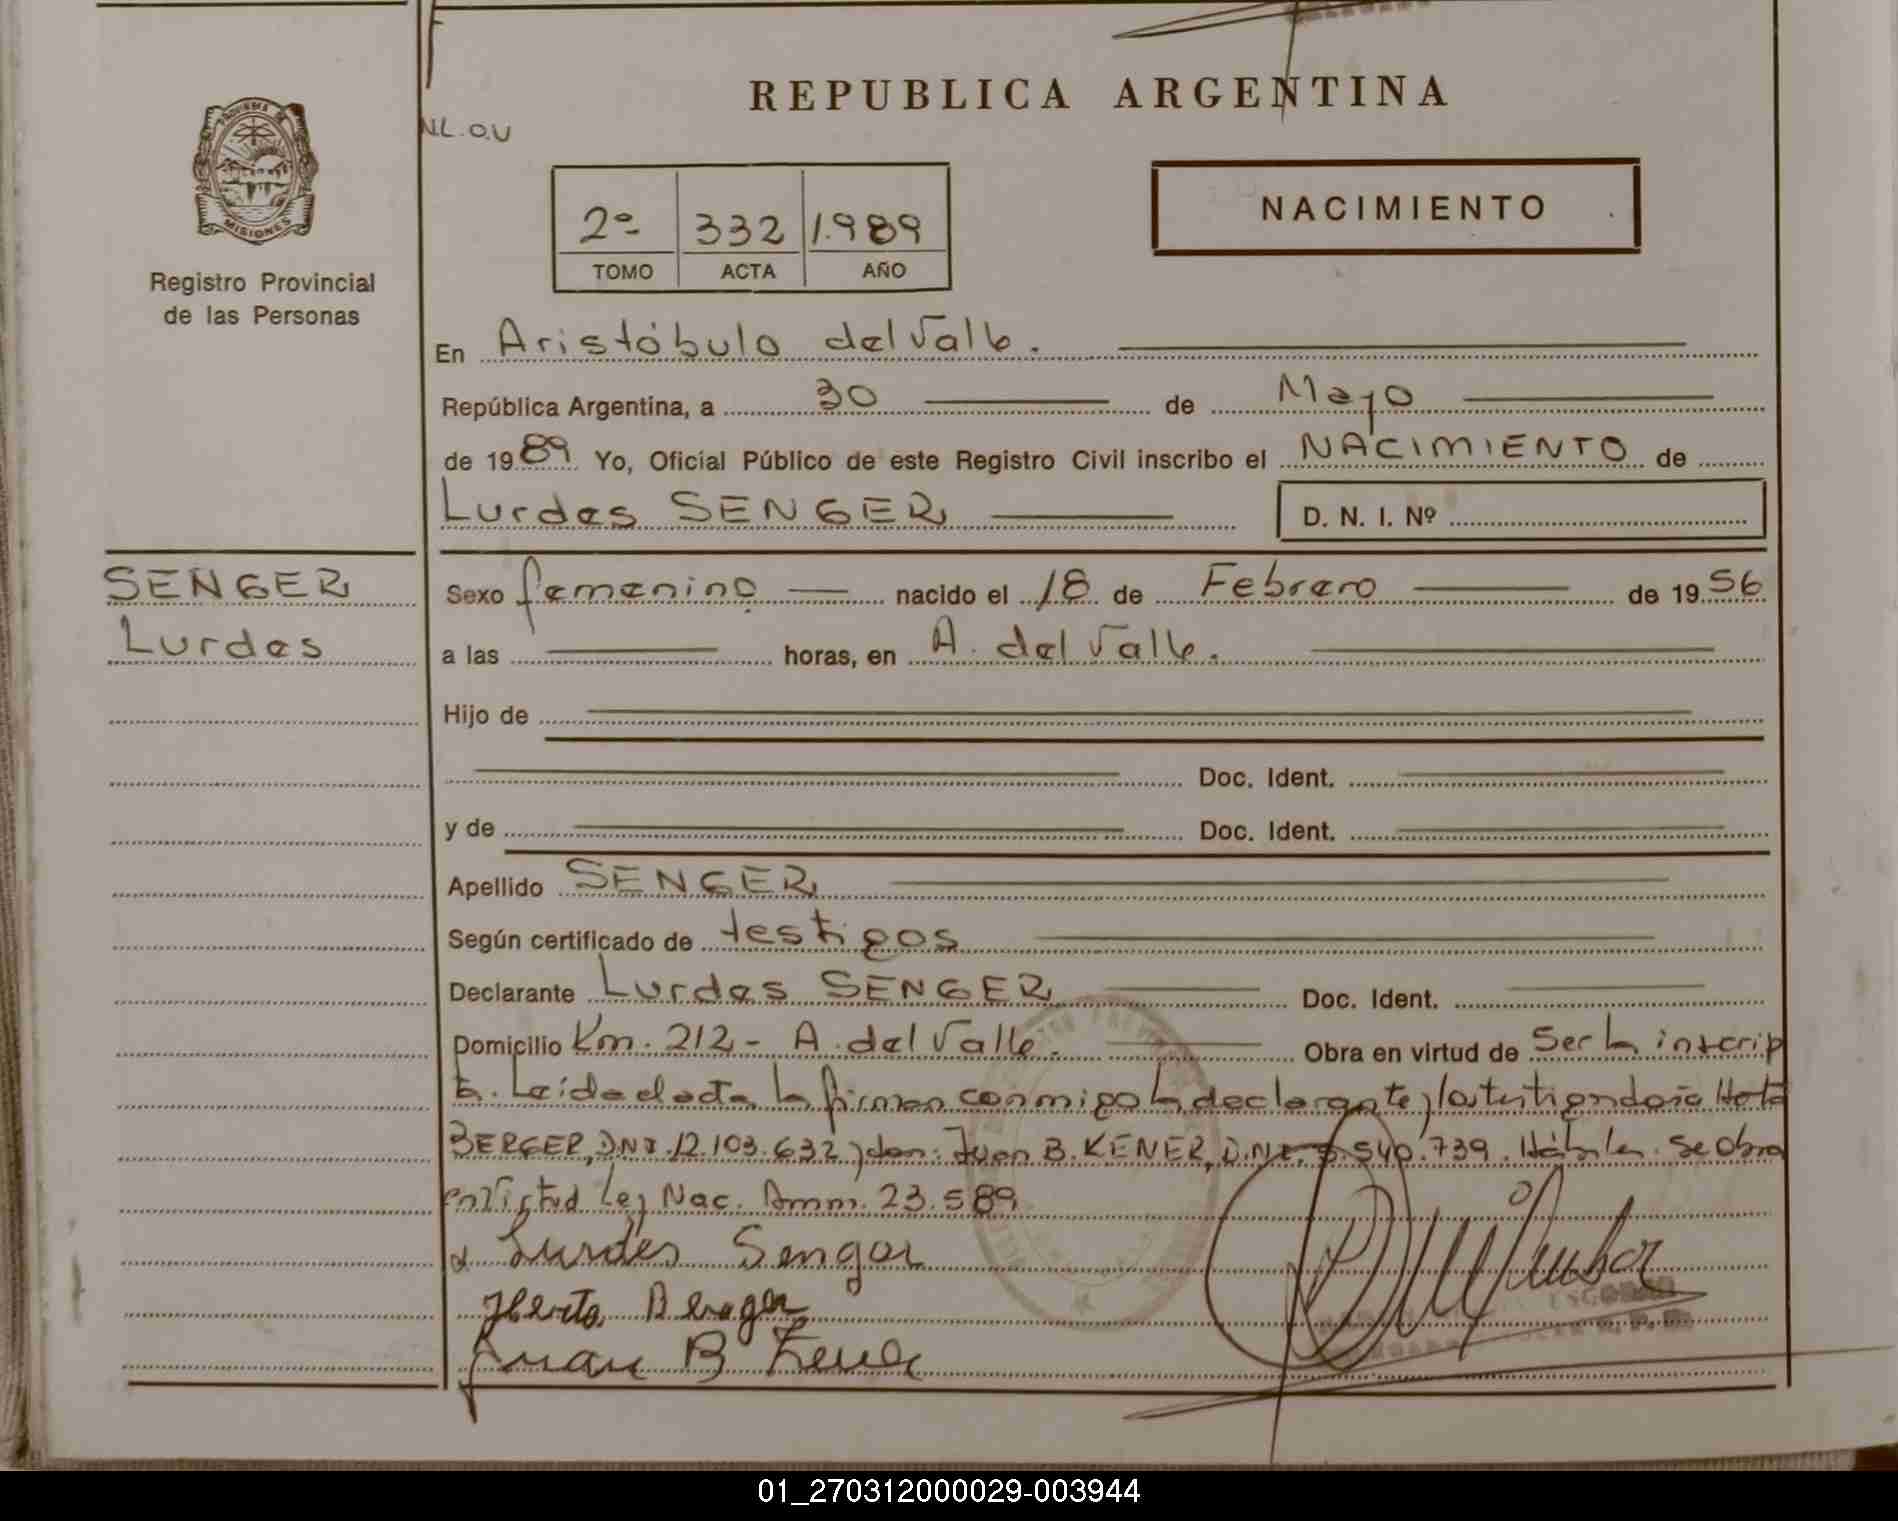 REPUBLICA ARGENTINA
PROVINCIA DE
MISIONES
Registro Provincial
de las Personas
NL.O.U
2º 332 1.989
TOMO ACTA AÑO
NACIMIENTO
En Aristóbulo del Valle.
República Argentina, a 30 de Mayo
de 1989 Yo, Oficial Público de este Registro Civil inscribo el NACIMIENTO de
Lurdes SENGER
D. N. I. Nº
SENGER
Lurdes
Sexo femenino nacido el 18 de Febrero de 1956
a las horas, en A. del Valle.
Hijo de
Doc. Ident.
y de Doc. Ident.
Apellido SENGER
Según certificado de testigos
Declarante Lurdes SENGER Doc. Ident.
Domicilio Km. 212 - A. del Valle. Obra en virtud de Ser la inscrip
ta. Leída el acta la firman conmigo la declarante y los testigos doña
BERGER, DNI. 12.103.632 y don: Juan B. KENER, D.N.I. 540.739. Hábiles. Se Obra
en Virtud Ley Nac. Amm. 23.589
x Lurdes Sengar
Berger
Juan B Kener
ESCOBAR
01_270312000029-003944